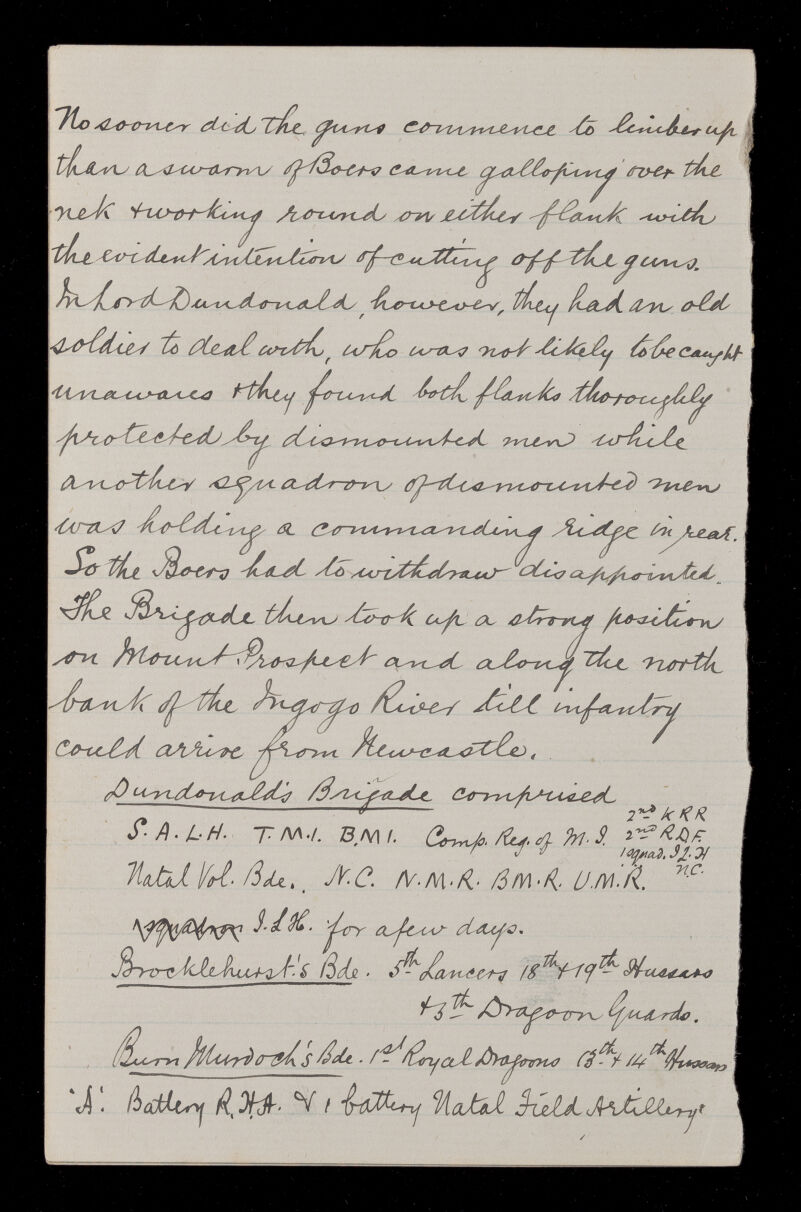 No sooner did the guns commence to limber up
than a swarm of Boers came galloping over the
nek & working round on either flank with
the evident intention of cutting off the guns.
In Lord Dundonald, however, they had an old
soldier to deal with, who was not likely to be caught
unawares & they found both flanks thoroughly
protected by dismounted men while
another squadron of dismounted men
was holding a commanding ridge in rear.
So the Boers had to withdraw disappointed.
The Brigade then took up a strong position
on Mount Prospect and along the north
bank of the Ingogo River till infantry
could arrive from Newcastle.
Dundonald's Brigade comprised
S.A.L.H. T.M.I. B.M.I. Comp. Reg. of M.I. 2nd K R R
2nd R.D.F.
1 squad. I.L.H
N.C.
Natal Vol. Bde. N.C. N.M.R. B.M.R. U.M.R.
squadron I.L.H. for a few days.
Brocklehurst's Bde. 5th Lancers 18th & 19th Hussars
& 5th Dragoon Guards.
Burn Murdoch's Bde. 1st Royal Dragoons 13th & 14th Hussars
'A'. Battery R.H.A. & 1 battery Natal Field Artillery